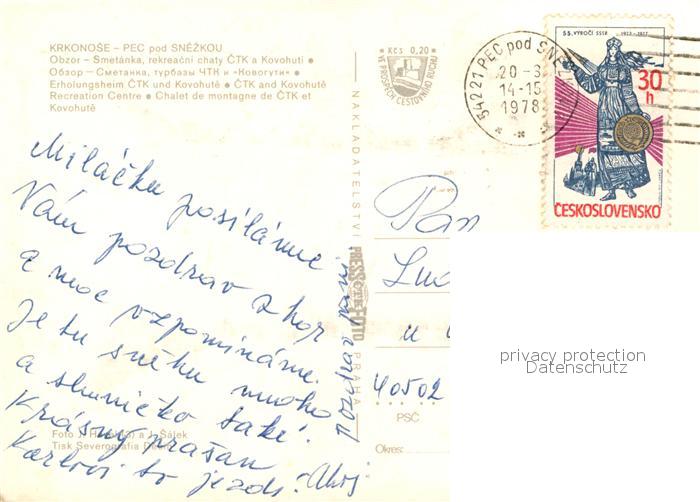 KRKONOŠE – PEC pod SNĚŽKOU
Obzor – Smetánka, rekreační chaty ČTK a Kovohuti •
Обзор – Сметанка, турбазы ЧТК и «Ковогути» •
Erholungsheim ČTK und Kovohutě • ČTK and Kovohutě
Recreation Centre • Chalet de montagne de ČTK et
Kovohutě
Kčs 0,20
VE PROSPĚCH CESTOVNÍHO RUCHU
54221 PEC pod SNĚŽ
20-3
14-15
1978
55. VÝROČÍ SSSR 1922-1977
30h
ČESKOSLOVENSKO
NAKLADATELSTVÍ
PRESSFOTO
ČTK
PRAHA
Miláčku posíláme
Vám pozdrav z hor
a moc vzpomínáme.
Je tu sněhu mnoho
a sluníčko také.
Krásný prašan
Karlovi to jezdí. Ahoj
Pozdrav
Pan
u
40502
PSČ
Okres:
Foto J. a J. Šálek
Tisk Severografia
privacy protection
Datenschutz